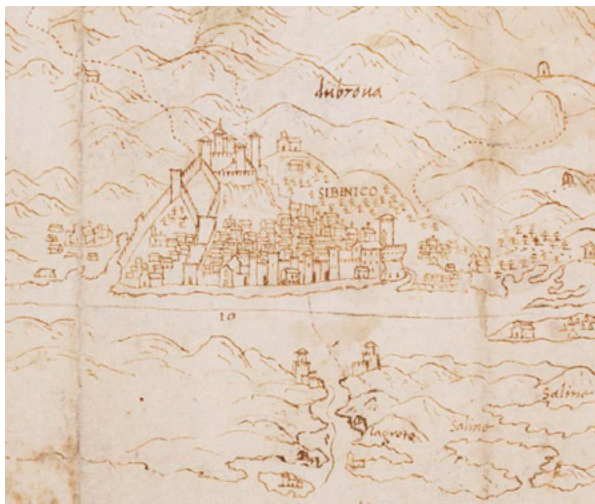 dubroua
SIBENICO
10
lagrota
Saline
Saline